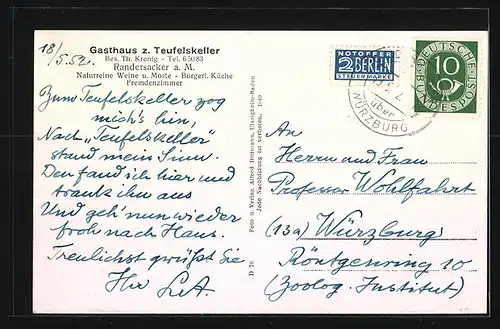 18/5.52.
Gasthaus z. Teufelskeller
Bes. Th. Krenig - Tel. 65083
Randersacker a. M.
Naturreine Weine u. Moste - Bürgerl. Küche
Fremdenzimmer
Zum Teufelskeller zog
mich's hin,
Nach "Teufelskeller"
stand mein Sinn.
Den fand ich hier und
trank ihn aus
Und geh' nun wieder
froh nach Haus.
Treulichst grüßt Sie
Ihr
D 76
Foto u. Verlag Alfred Hofmann, Uissigheim-Baden
Jede Nachbildung ist verboten.
NOTOPFER
2 BERLIN
STEUERMARKE
über
WÜRZBURG
DEUTSCHE
BUNDESPOST
10
An
Herrn und Frau
Professor Wohlfahrt
(13a) Würzburg
Röntgenring 10
(Zoolog. Institut)